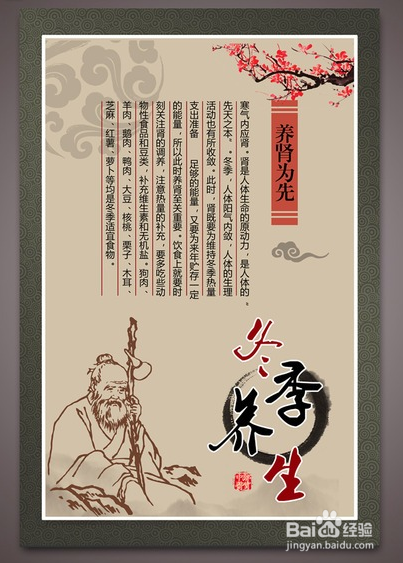 养肾为先
寒气内应肾。肾是人体生命的原动力，是人体的“
先天之本”。冬季，人体阳气内敛，人体的生理
活动也有所收敛。此时，肾既要为维持冬季热量
支出准备　足够的能量，又要为来年贮存一定
的能量，所以此时养肾至关重要。饮食上就要时
刻关注肾的调养，注意热量的补充，要多吃些动
物性食品和豆类，补充维生素和无机盐。狗肉、
羊肉、鹅肉、鸭肉、大豆、核桃、栗子、木耳、
芝麻、红薯、萝卜等均是冬季适宜食物。
冬季养生
Baidu经验
jingyan.baidu.com